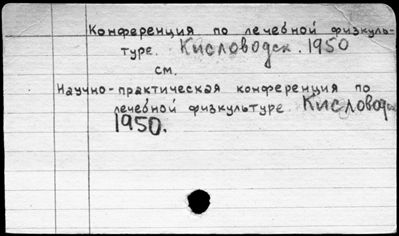 Конференция по лечебной физкуль-
туре. Кисловодск. 1950
см.
Научно-практическая конференция по
лечебной физкультуре. Кисловодс
1950.